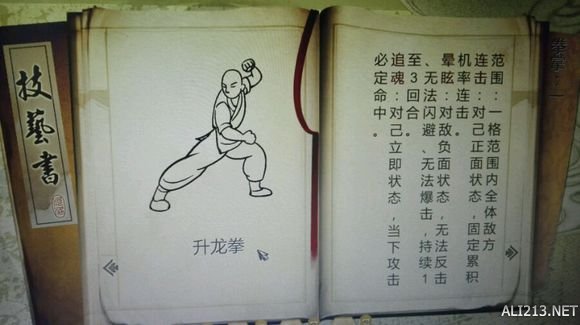 技藝書
升龙拳
范围：一格范围内全体敌方
连击：对己正面状态，固定累积
机率连击。
晕眩：对敌负面状态，无法反击
、无法闪避、无法爆击，持续1
至3回合。
追魂：对己立即状态，当下攻击
必定命中。
拳掌
ALI213.NET